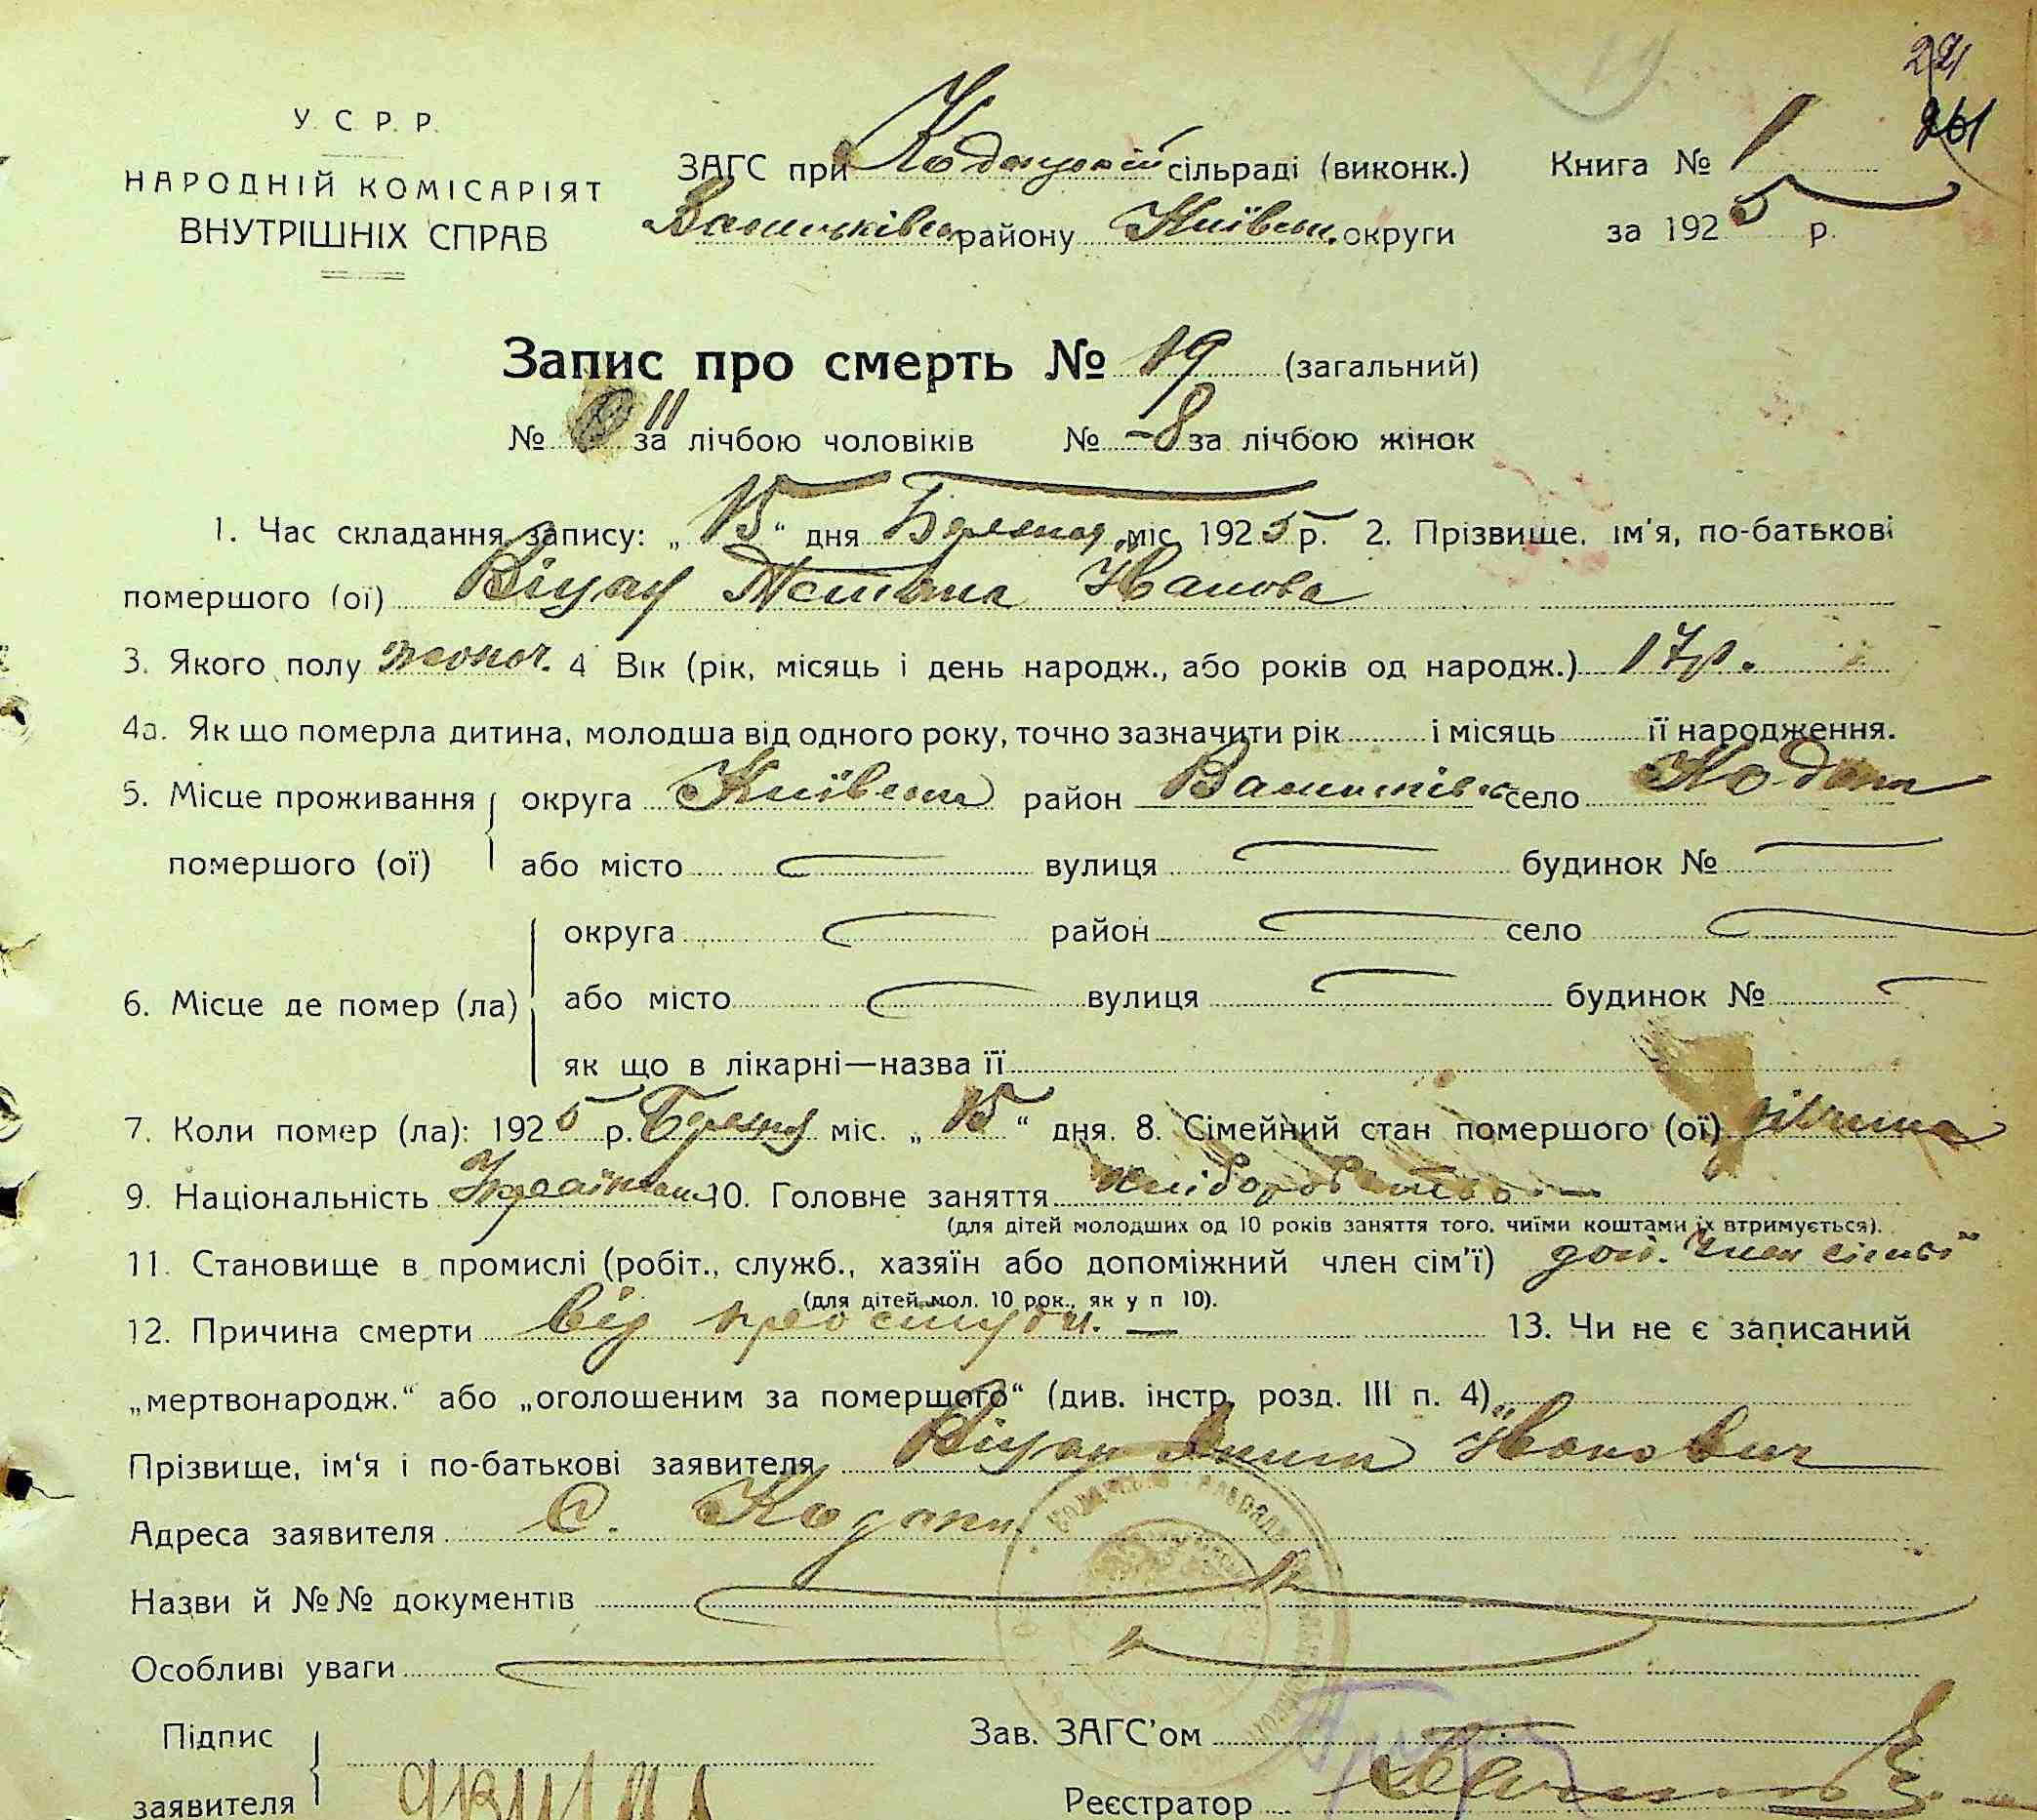 221
261
У. С. Р. Р.
НАРОДНІЙ КОМІСАРІЯТ
ВНУТРІШНІХ СПРАВ
ЗАГС при Кодацькій сільраді (виконк.) Книга № 1
району Київськ. округи за 1925 р.
Запис про смерть № 19 (загальний)
№ 11 за лічбою чоловіків № -8 за лічбою жінок
1. Час складання запису: „15“ дня Березня міс. 1925 р. 2. Прізвище, ім'я, по-батькові
помершого (ої) Тетяна Іванова
3. Якого полу жоноч. 4 Вік (рік, місяць і день народж., або років од народж.) 17 р.
4а. Як що померла дитина, молодша від одного року, точно зазначити рік і місяць її народження.
5. Місце проживання округа Київськ район село Кодаки
помершого (ої) або місто — вулиця — будинок № —
округа — район — село —
6. Місце де помер (ла) або місто — вулиця — будинок № —
як що в лікарні—назва її
7. Коли помер (ла): 1925 р. Березня міс. „15“ дня. 8. Сімейний стан помершого (ої) дівчина
9. Національність 10. Головне заняття хліборобство —
(для дітей молодших од 10 років заняття того, чиїми коштами їх втримується).
11. Становище в промислі (робіт., служб., хазяїн або допоміжний член сім'ї) доп. член сімьї
(для дітей мол. 10 рок., як у п 10).
12. Причина смерти від простуди. — 13. Чи не є записаний
„мертвонародж.“ або „оголошеним за помершого“ (див. інстр. розд. III п. 4)
Прізвище, ім'я і по-батькові заявителя Іванович
Адреса заявителя с. Кодаки
Назви й №№ документів —
Особливі уваги —
Підпис
заявителя
Зав. ЗАГС'ом
Реєстратор